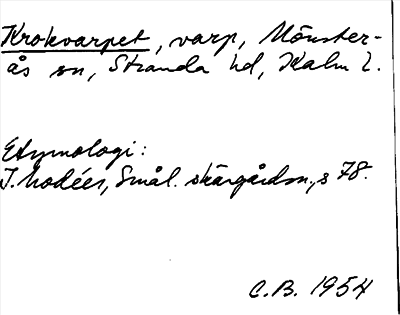 Krokvarpet, varp, Mönster-
ås sn, Stranda hd, Kalm l.
Etymologi:
I. Modéer, Smål. skärgårdsn., s 78.
C.B. 1954